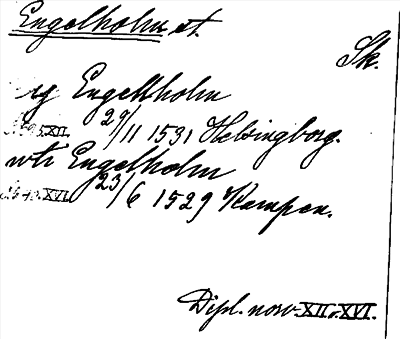 Engelholm, st.
Sk.
Engelholm
XII. 29/11 1531 Helsingborg.
wti Engelholm
XVI. 23/6 1529 Kampen.
Dipl. norv. XII o. XVI.